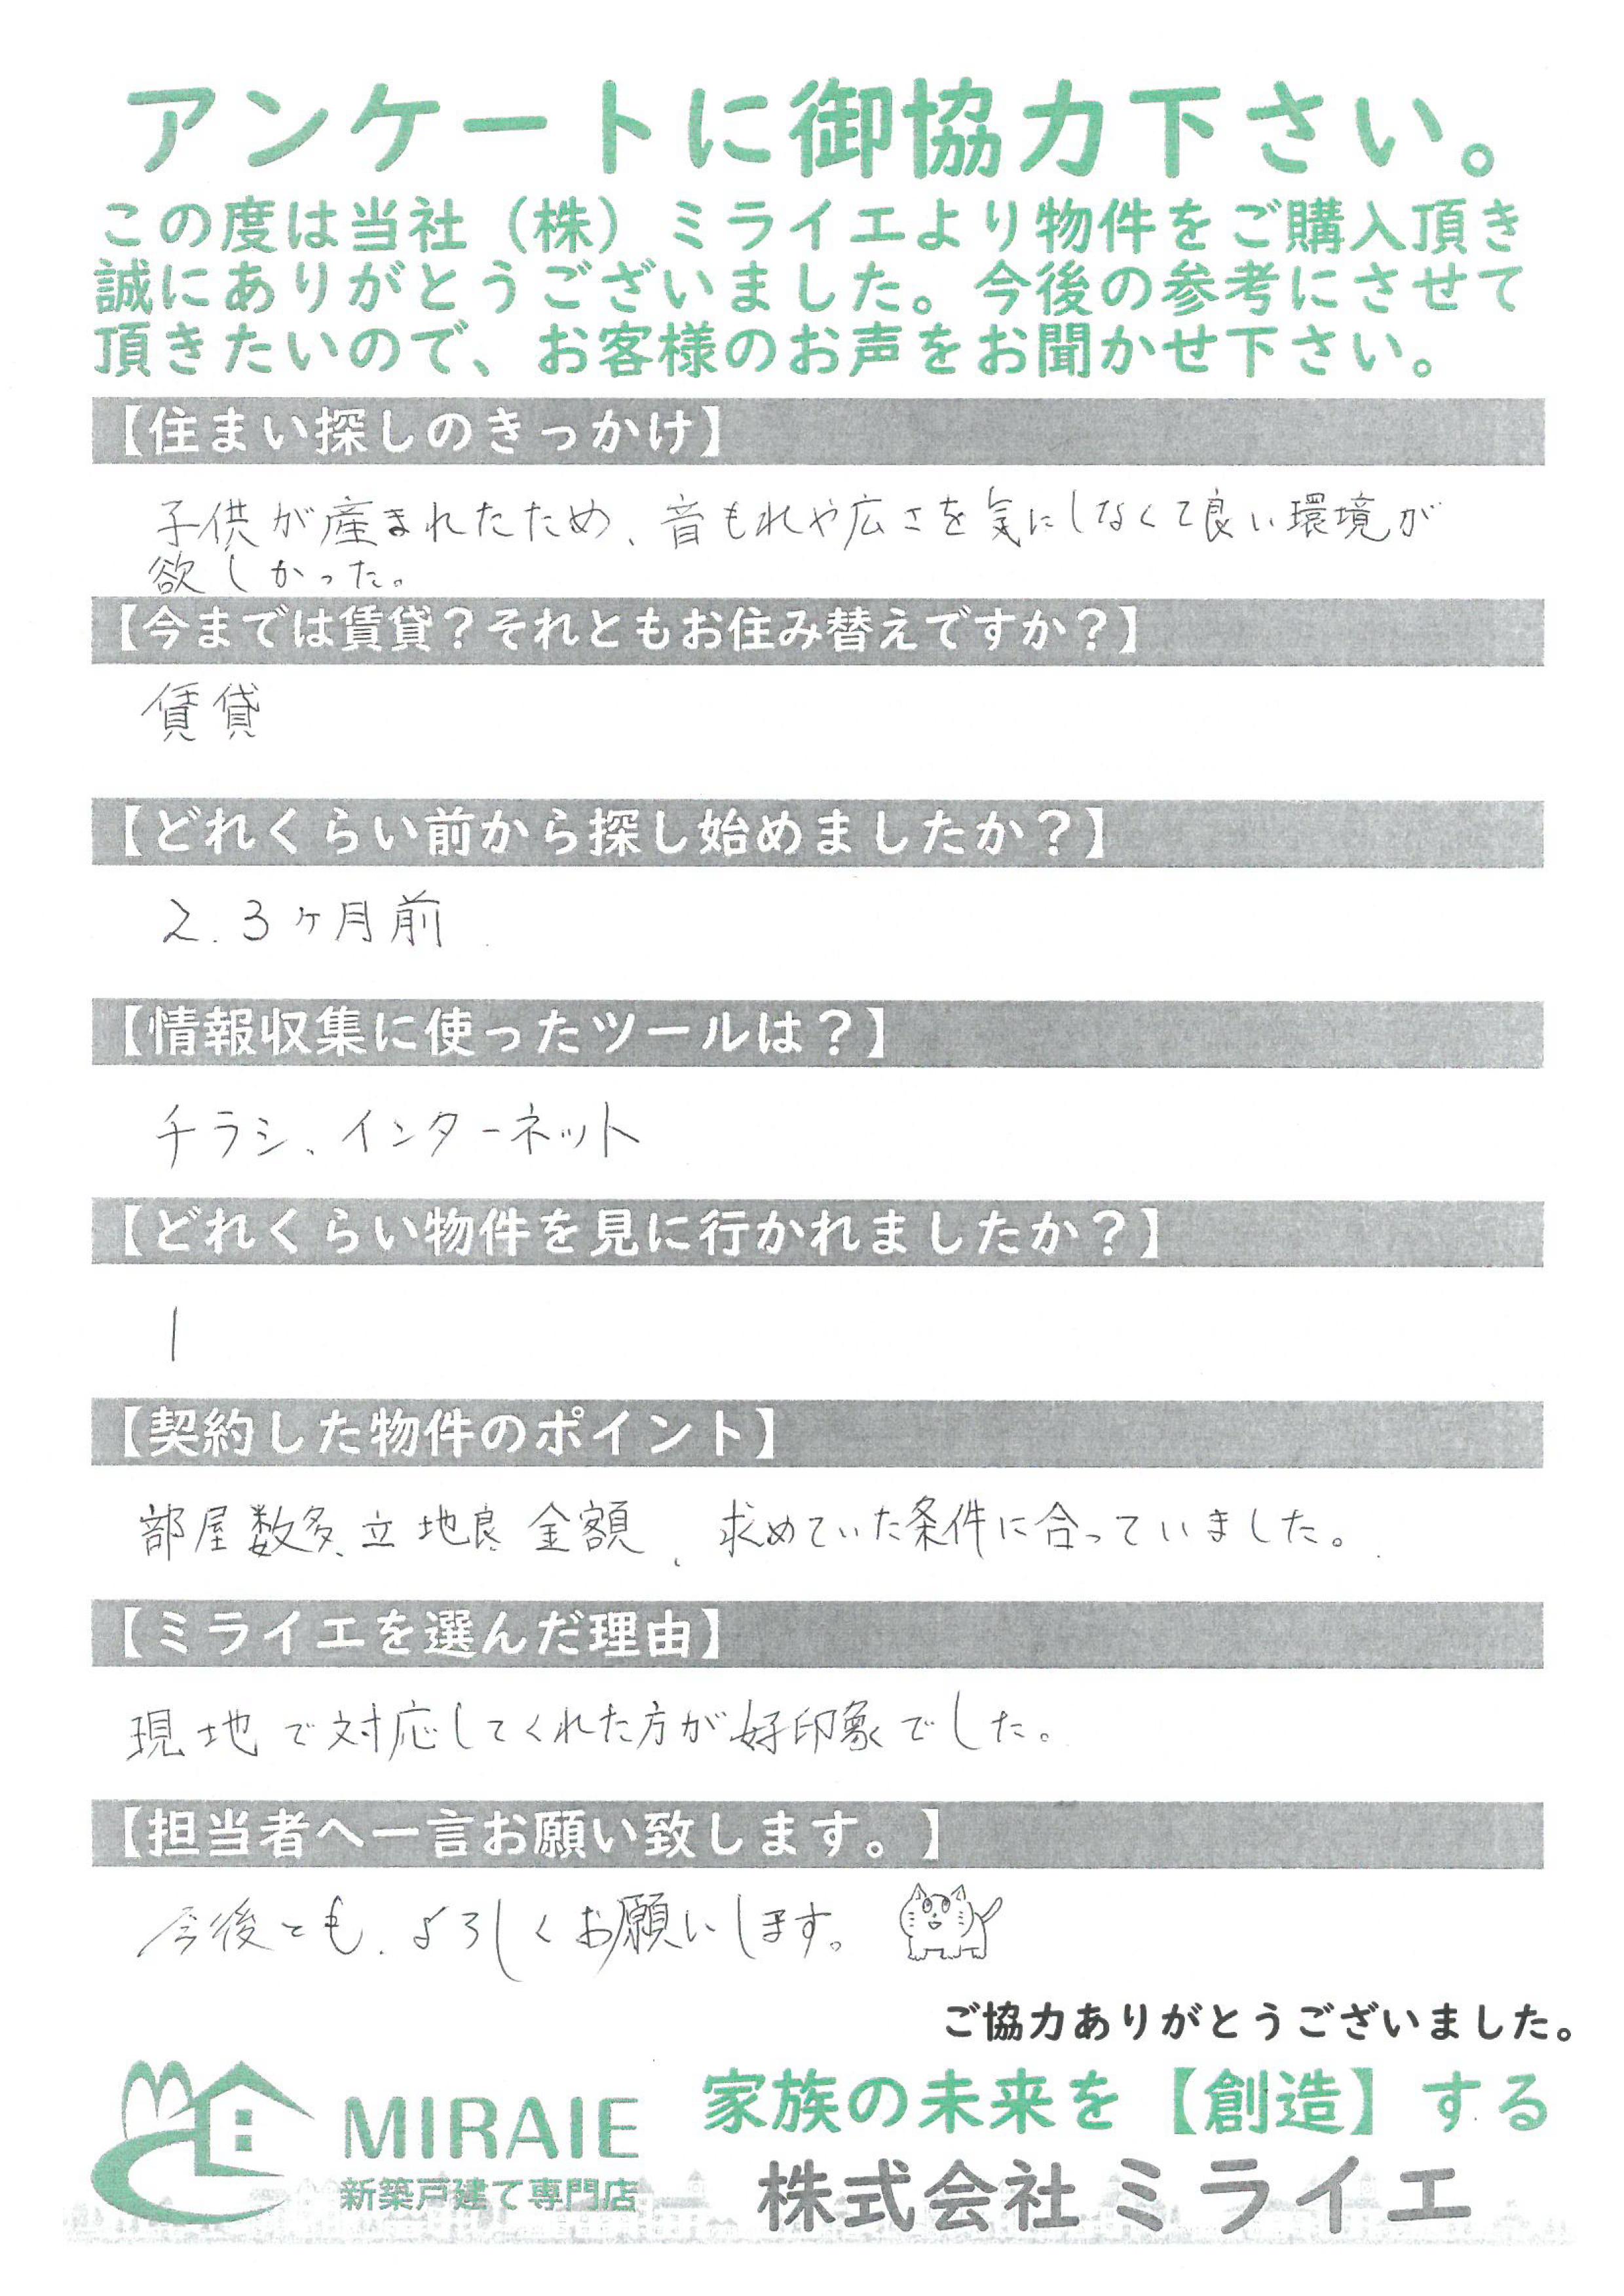 アンケートに御協力下さい。
この度は当社（株）ミライエより物件をご購入頂き
誠にありがとうございました。今後の参考にさせて
頂きたいので、お客様のお声をお聞かせ下さい。
【住まい探しのきっかけ】
子供が産まれたため、音もれや広さを気にしなくて良い環境が
欲しかった。
【今までは賃貸？それともお住み替えですか？】
賃貸
【どれくらい前から探し始めましたか？】
2.3ヶ月前
【情報収集に使ったツールは？】
チラシ、インターネット
【どれくらい物件を見に行かれましたか？】
1
【契約した物件のポイント】
部屋数多、立地良、金額、求めていた条件に合っていました。
【ミライエを選んだ理由】
現地で対応してくれた方が好印象でした。
【担当者へ一言お願い致します。】
今後とも、よろしくお願いします。
ご協力ありがとうございました。
MIRAIE
新築戸建て専門店
家族の未来を【創造】する
株式会社ミライエ